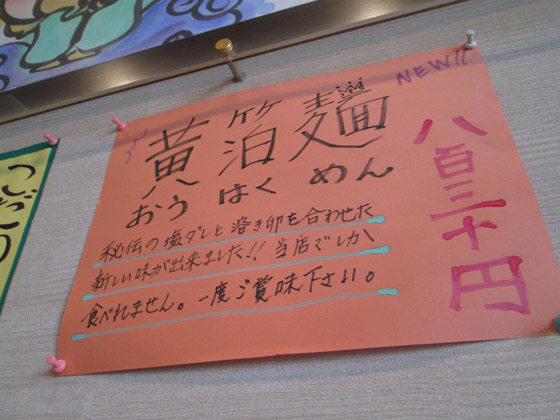 NEW!!
黄箔麺
おう はく めん
秘伝の塩ダレと溶き卵を合わせた
新しい味が出来ました!! 当店でしか
食べれません。一度ご賞味下さい。
八百三十円